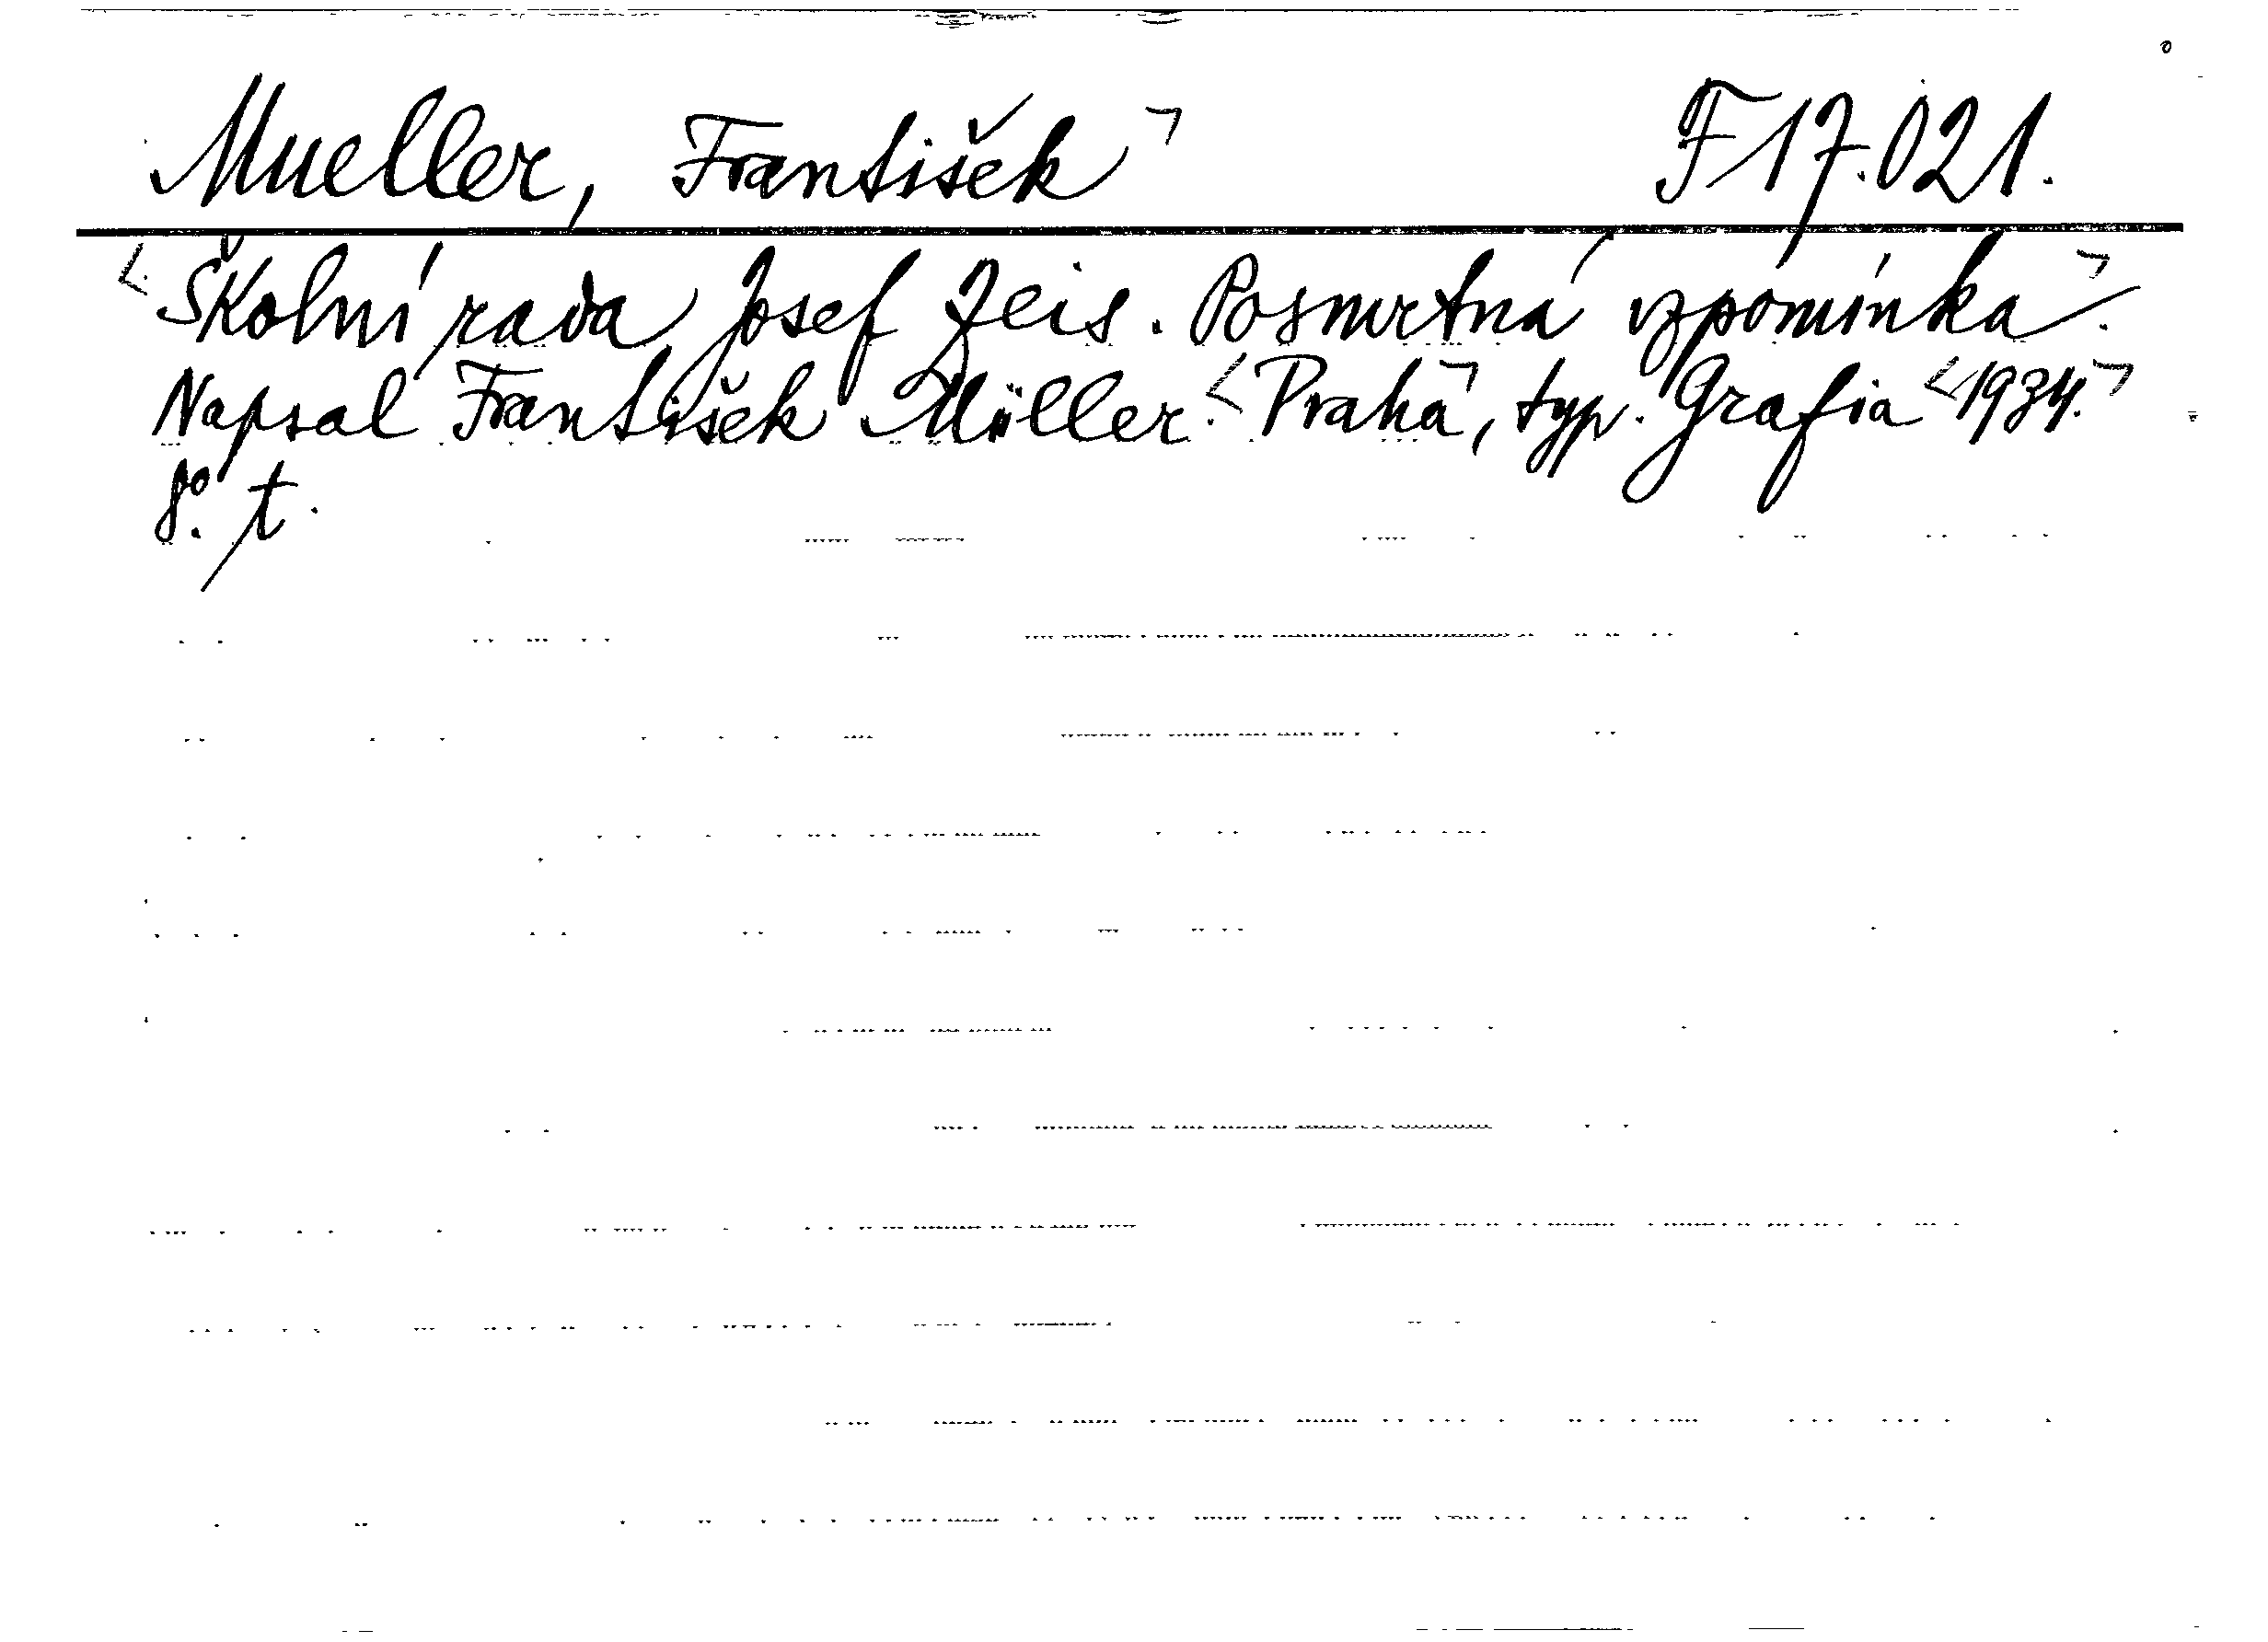 Mueller, František F 17.021.
Školní rada Josef Zeis. Posmrtná vzpomínka.
Napsal František Müller. Praha, typ. Grafia 1934.
8°. t.